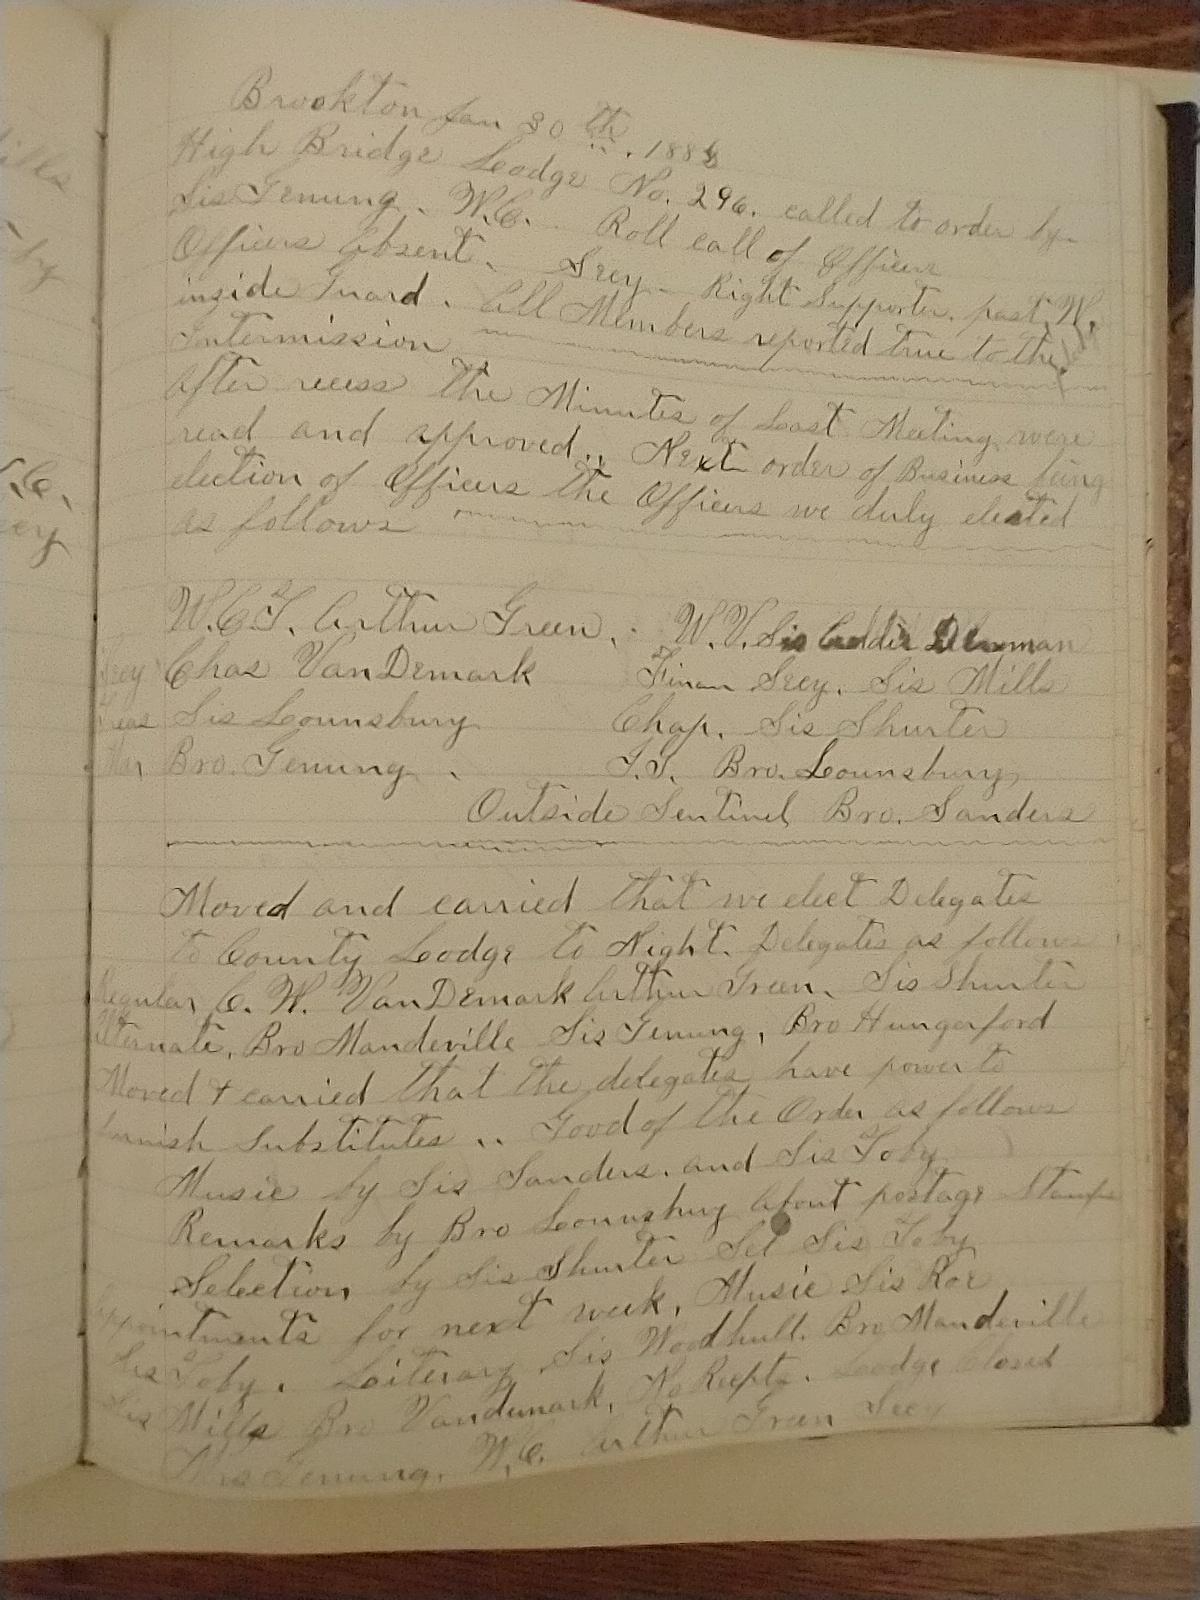 Brookton Jan 30th. 1888
High Bridge Lodge No. 296. called to order by
Sis Genung. W.C. Roll call of Officers
Officers Absent. Secy - Right Supporter. past W.
inside Guard. All Members reported true to the
Intermission
After recess the Minutes of Last Meeting were
read and approved.. Next order of Business being
election of Officers the Officers we duly elected
as follows
W.C.T. Arthur Green. W.V. Sis
Secy Chas VanDemark Finan Secy. Sis Mills
Treas Sis Lounsbury Chap. Sis Shurter
Mar Bro. Genung. I.G. Bro. Lounsbury
Outside Sentinel Bro. Sanders
Moved and carried that we elect Delegates
to County Lodge to Night. Delegates as follows
Regular C. W. VanDemark Arthur Green, Sis Shurter
Alternate, Bro Mandeville Sis Genung, Bro Hungerford
Moved + carried that the delegates have power to
furnish Substitutes .. Good of the Order as follows
Music by Sis Sanders. and Sis Toby
Remarks by Bro Lounsbury about postage Stamps
Selection by Sis Shurter Sel Sis Toby
Appointments for next week, Music Sis Roe
Sis Toby. Literary Sis Woodhull. Bro Mandeville
Sis Mills Bro Vandemark, No Recpts. Lodge Closed
Mrs Genung. W.C. Arthur Green Secy